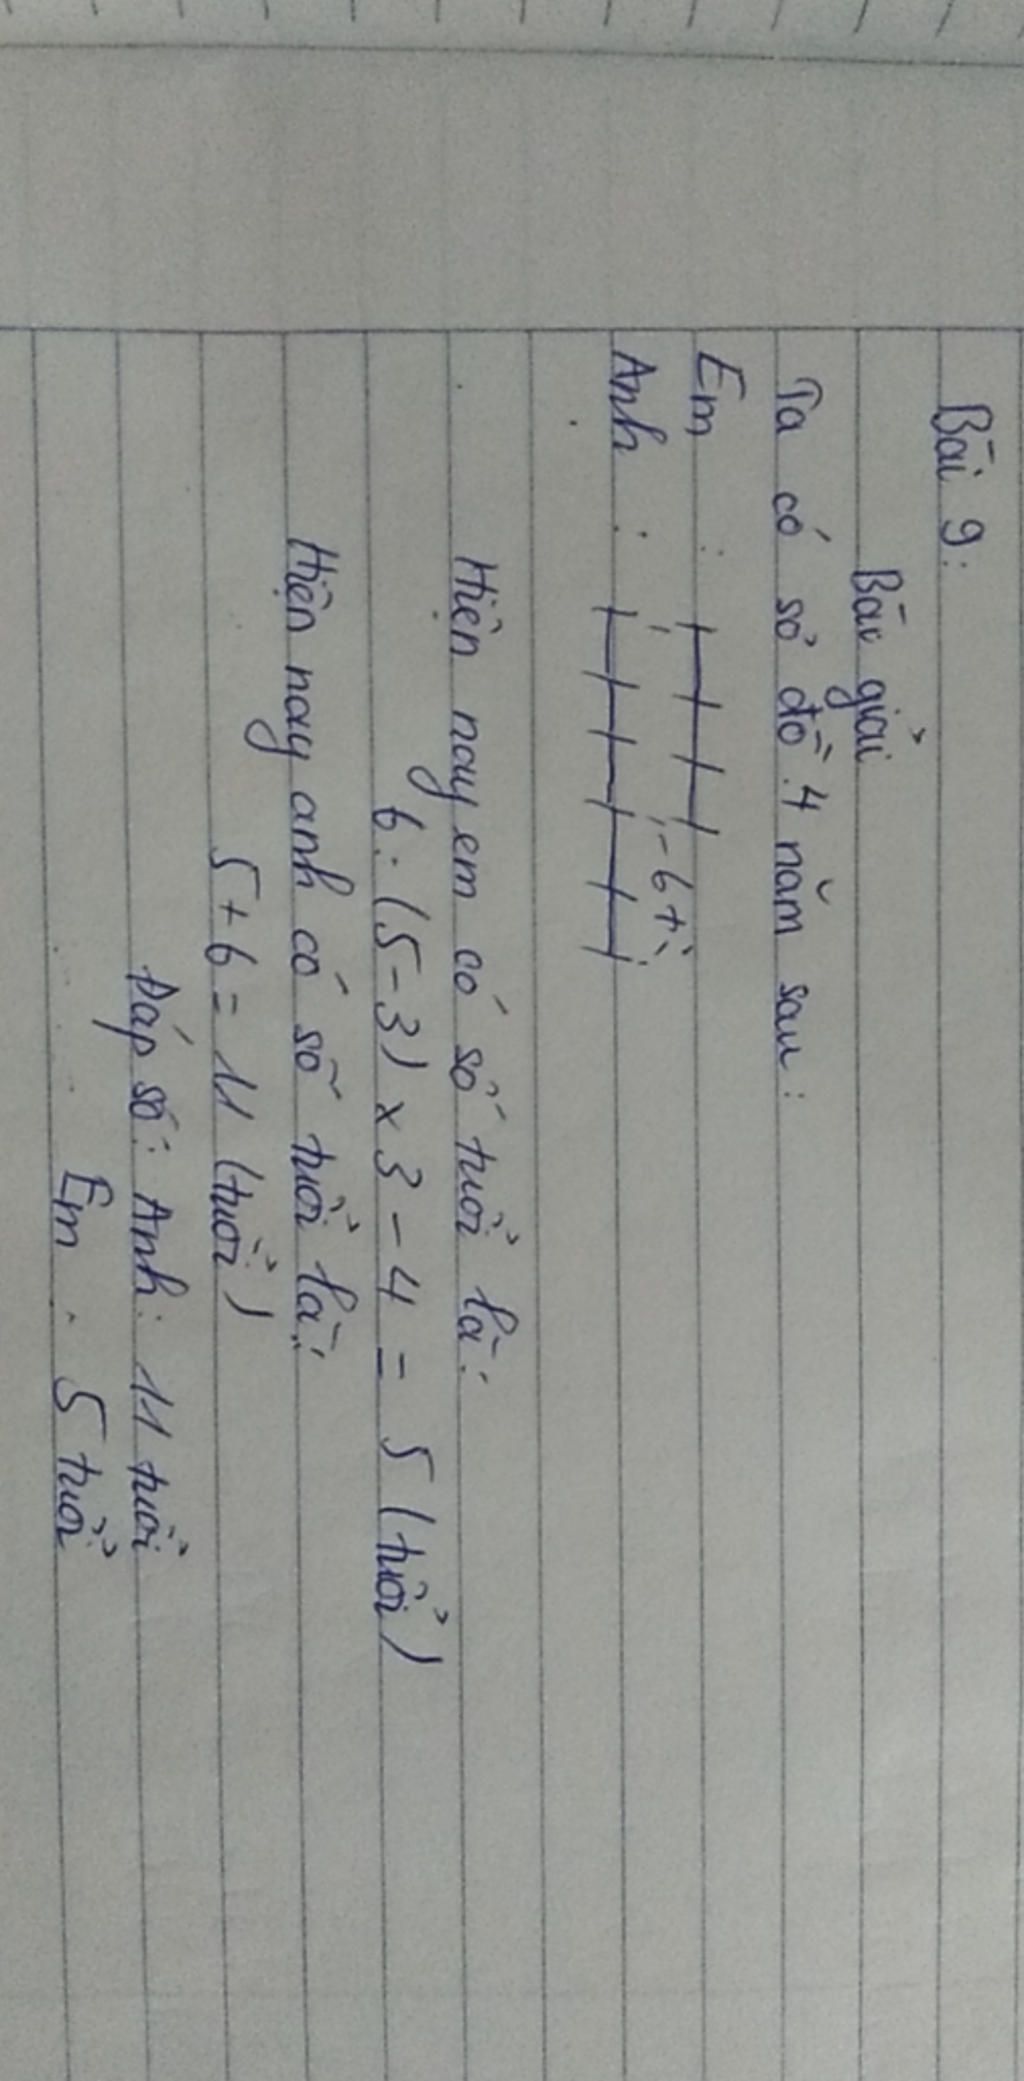 Bài 9:
Bài giải
Ta có sơ đồ 4 năm sau:
Em :
6t
Anh :
Hiện nay em có số tuổi là:
6 : (5 - 3) x 3 - 4 = 5 (tuổi)
Hiện nay anh có số tuổi là:
5 + 6 = 11 (tuổi)
Đáp số: Anh: 11 tuổi
Em . 5 tuổi